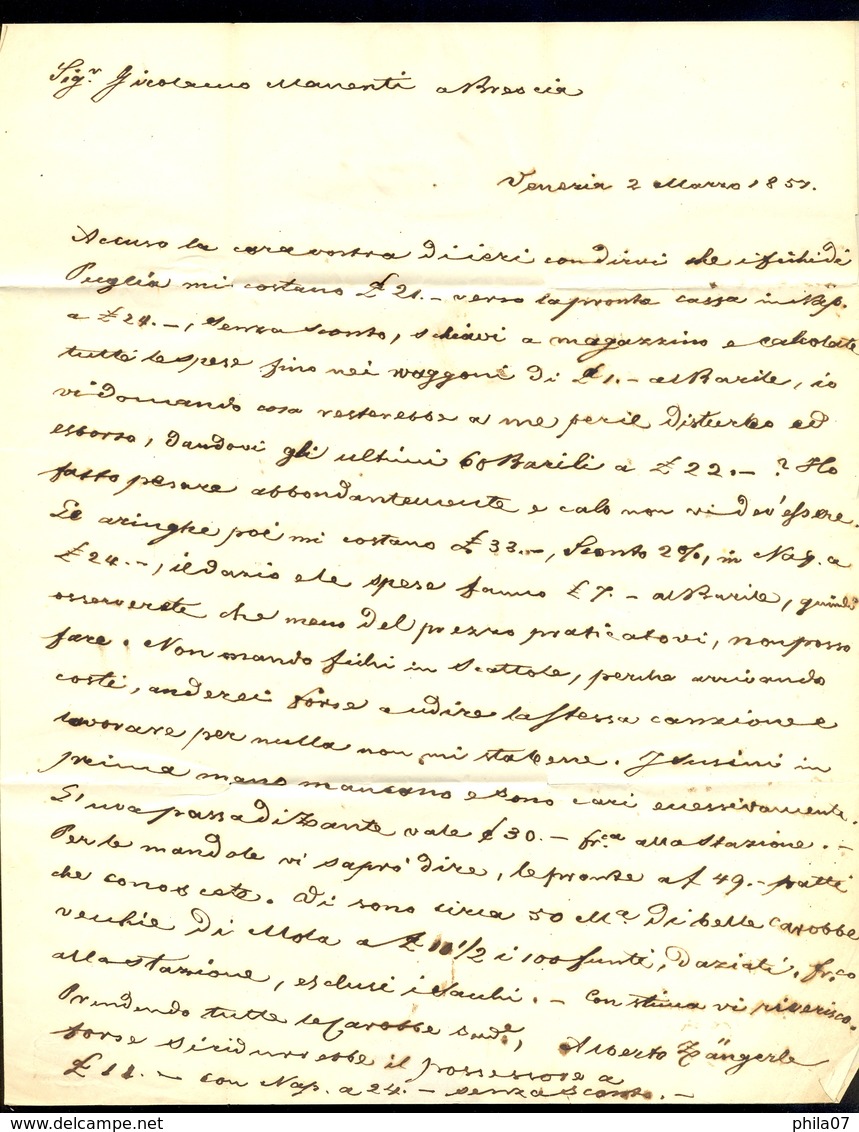 Sig.r Girolamo Manenti a Brescia
Venezia 2 Marzo 1857.
Accuso la cara vostra di ieri con dirvi che i fichi di
Puglia mi costano £ 21.- verso la pronta cassa in Nap.
a £ 24.-, senza sconto, schiavi a magazzino e calcolate
tutte le spese fino nei waggoni di £ 1.- al Barile, io
vi domando cosa resterebbe a me per il disturbo ed
esborso, dandovi gli ultimi 60 Barili a £ 22.- ? Ho
fatto pesare abbondantemente e calo non vi dev'essere.
Le aringhe poi mi costano £ 33.-, Sconto 2%, in Nap. a
£ 24.-, il dazio e le spese fanno £ 7.- al Barile, quindi
osserverete che meno del prezzo praticatovi, non posso
fare. Non mando fichi in Scattole, perche arrivando
costì, anderei forse a udire la stessa canzione e
lavorare per nulla non mi sta bene. I susini in
prima mano mancano e sono cari eccessivamente.
L'uva passa di Zante vale £ 30.- fr.ca alla Stazione.-
Per le mandole vi saprò dire, le pronte a f 49.- patti
che conoscete. Vi sono circa 50 M.a di belle carobbe
vecchie di Mola a £ 11 1/2 i 100 funti, daziati, fr.co
alla Stazione, esclusi i sacchi.- Con stima vi riverisco.
Prendendo tutte le Carobbe sud.e, Alberto Zängerle
forse si ridurrebbe il possessore a
£ 11.- con Nap. a 24.- senza sconto.-
phila07